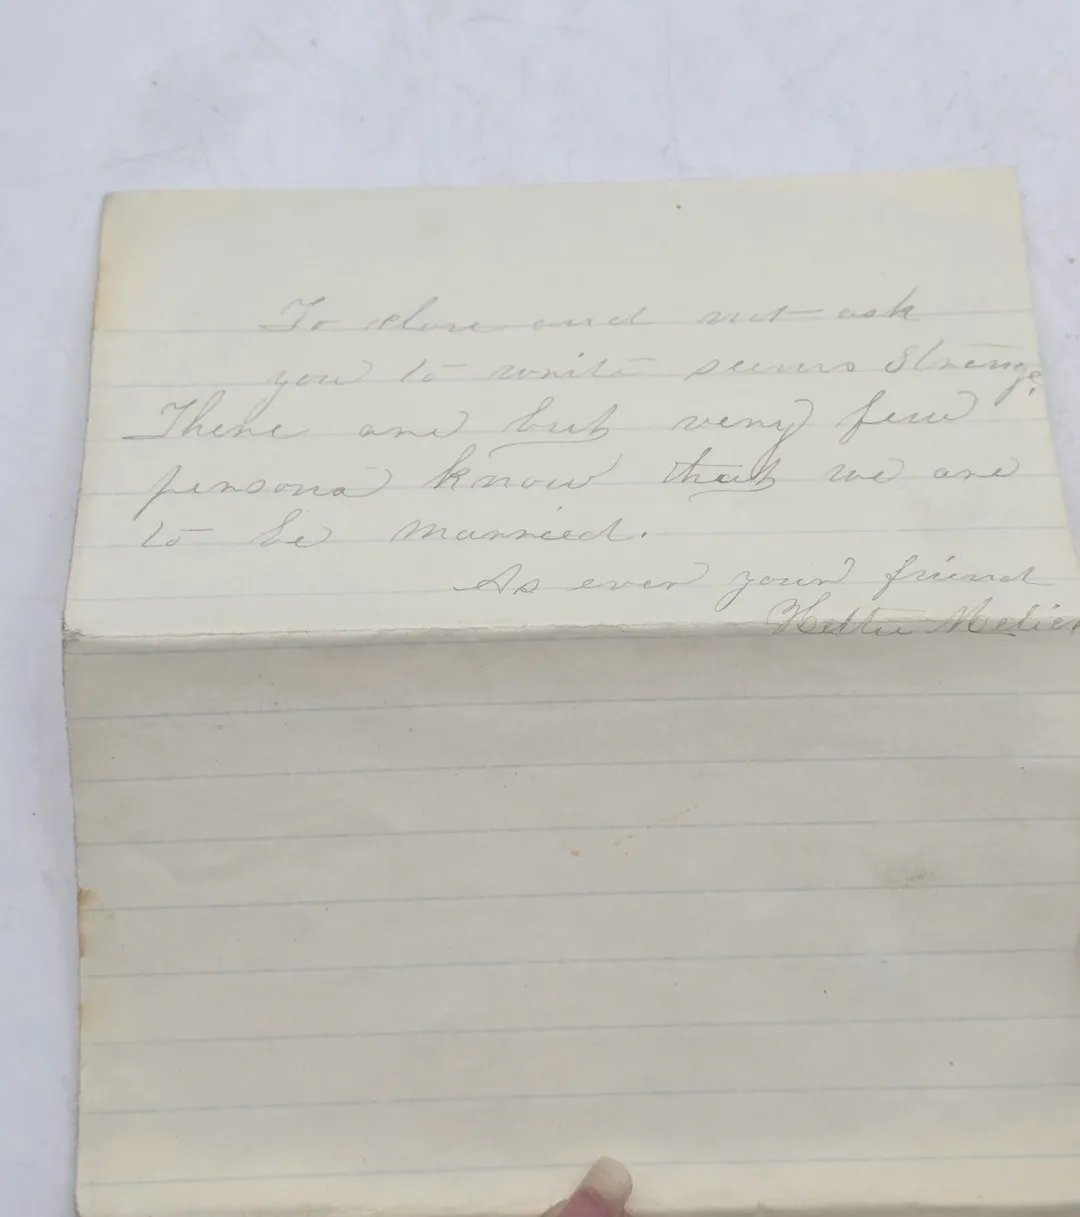 To close and not ask
you to write seems strange.
There are but very few
persons know that we are
to be married.
As ever your friend
Hettie